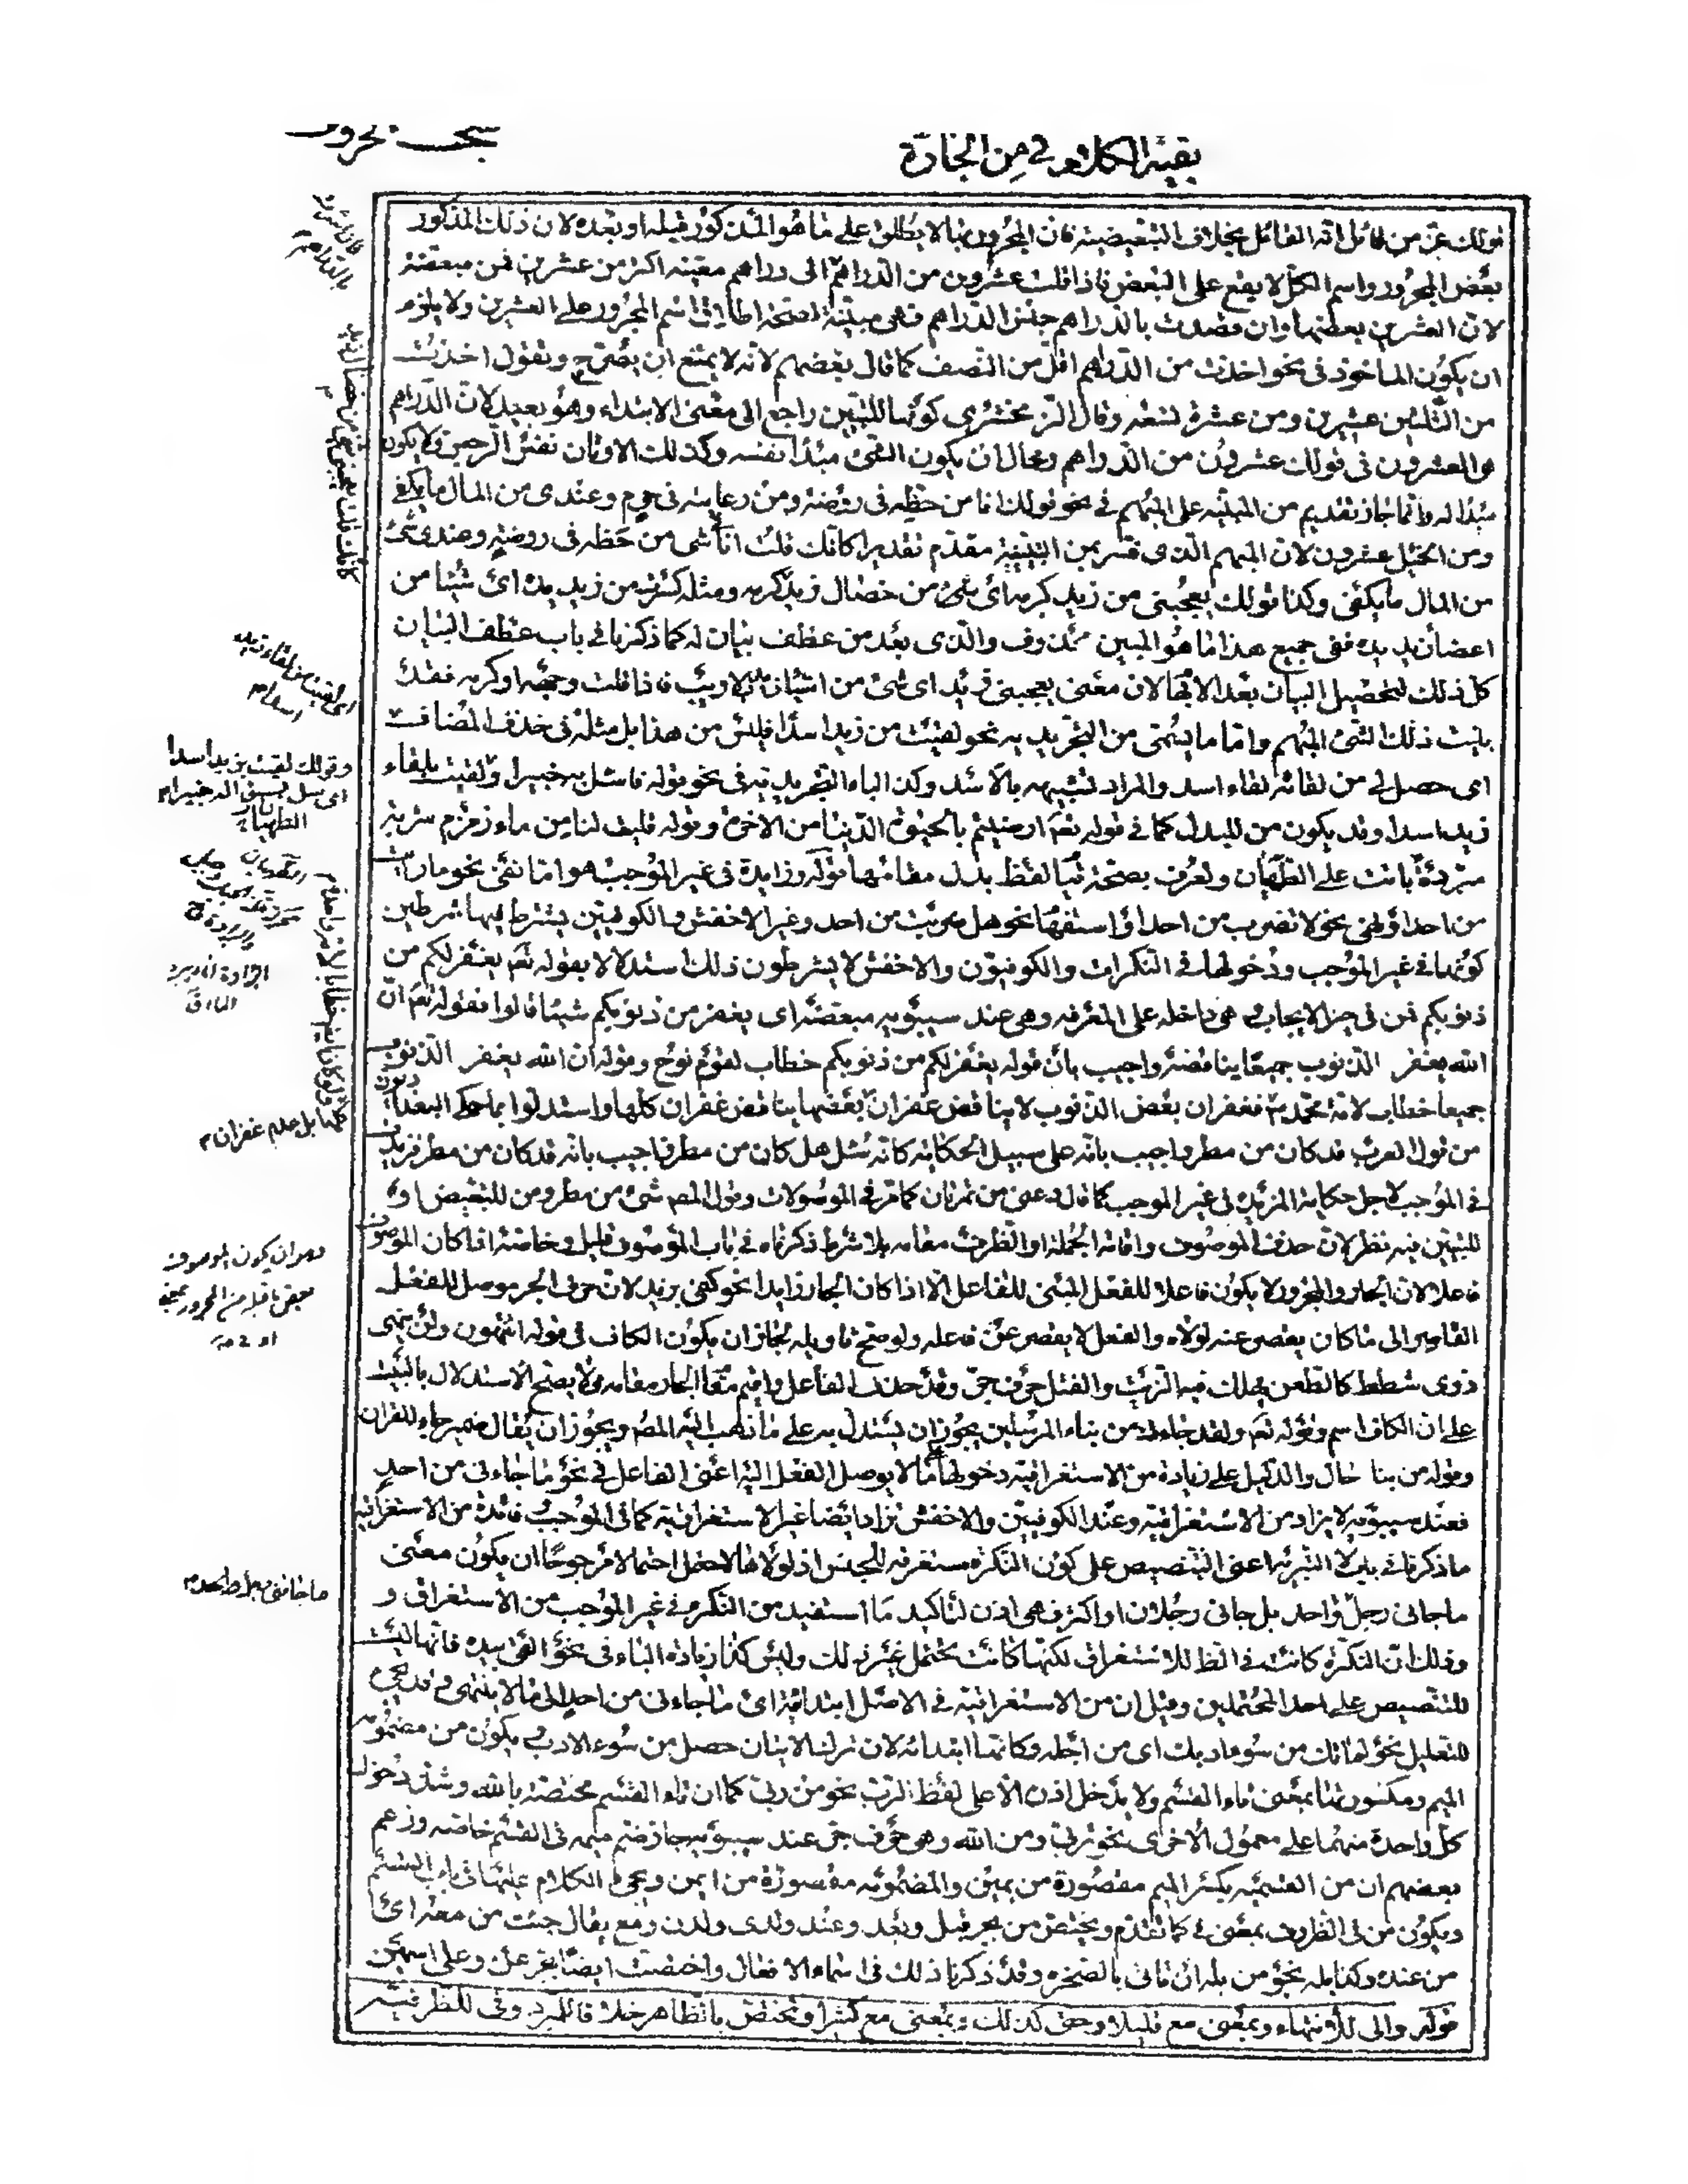 بقية الكلام في من الجارة
قولك عز من قائل انه القائل بخلاف التبعيضية فان المجرور بها لا يطلق على ما هو المذكور قبله او بعده لان ذلك المذكور
بعض المجرور واسم الكل لا يقع على البعض فاذا قلت عشرون من الدراهم الى دراهم معينة اكثر من عشرين فمن مبعضة
لان العشرين بعضها وان قصدت بالدراهم جنس الدراهم فهى مبينة لصحة اطلاق اسم المجرور على العشرين ولا يلزم
ان يكون الماخوذ فى نحو اخذت من الدراهم اقل من النصف كما قال بعضهم لانه لا يمتنع ان يصرح ويقول اخذت
من الثلثين عشرين ومن عشرة تسعة وقال الزمخشرى كونها للتبيين راجع الى معنى الابتداء وهو بعيد لان الدراهم
هى العشرون فى قولك عشرون من الدراهم ومحال ان يكون الشئ مبدأ نفسه وكذلك الاوثان نفس الرجس ولا يكون
مبدأ له وانما جاز تقديم من المبينة على المبهم فى نحو قولك انا من حظه فى روضة ومن رعايته فى حرم وعندى من المال ما يكفى
ومن الخيل عشرون لان المبهم الذى فسر بمن التبيينية مقدم تقديرا كانك قلت انا فى شئ من حظه فى روضة وعندى شئ
من المال ما يكفى وكذا قولك يعجبنى من زيد كرمه اى شئ من خصال زيد كرمه ومثله كسرت من زيد يده اى شيئا من
اعضاء زيد يده ففى جميع هذا ما هو المبين محذوف والذى بعد من عطف بيان له كما ذكرنا فى باب عطف البيان
كل ذلك لتحصيل البيان بعد الابهام لان معنى يعجبنى زيد اى شئ من اشياء زيد بلا ريب فاذا قلت وجهه او كرمه فقد
بينت ذلك الشئ المبهم واما ما يسمى من التجريدية نحو لقيت من زيد اسدا فليس من هذا بل مثله فى حذف المضاف
اى حصل لى من لقائه لقاء اسد والمراد تشبيهه بالاسد وكذا الباء التجريدية فى نحو قوله فاسئل به خبيرا ولقيت بلقاء
زيد اسدا وقد يكون من للبدل كما فى قوله تعم ارضيتم بالحيوة الدنيا من الاخرة وقوله فليت لنا من ماء زمزم شربة
مبردة باتت على الطهيان وتعرف بصحة قيام لفظ بدل مقامها قوله وزايدة فى غير الموجب هو اما نفى نحو ما رايت
من احد او نهى نحو لا تضرب من احد او استفهام نحو هل ضربت من احد وغير الاخفش والكوفيين يشترط فيها شرطين
كونها فى غير الموجب ودخولها فى النكرات والكوفيون والاخفش لا يشترطون ذلك استدلالا بقوله تعم يغفر لكم من
ذنوبكم فمن فى حيز الايجاب وهى داخلة على المعرفة وهى عند سيبويه مبعضة اى يغفر من ذنوبكم شيئا قالوا فقوله تعم ان
الله يغفر الذنوب جميعا يناقضه واجيب بان قوله يغفر لكم من ذنوبكم خطاب لقوم نوح وقوله ان الله يغفر الذنوب
جميعا خطاب لامة محمد فغفران بعض الذنوب لا يناقض غفران كلها واستدلوا بما حكى البغداديون
من قول العرب قد كان من مطر واجيب بانه على سبيل الحكاية كانه سئل هل كان من مطر فاجيب بانه قد كان من مطر فزيدت
فى الموجب لاجل حكاية المزيدة فى غير الموجب كما قال دعنى من تمرتان كما مر فى الموصولات وقول المص شئ من مطر ومن للتبعيض او
للتبيين فيه نظر لان حذف الموصوف واقامة الجملة او الظرف مقامه بلا شرط ذكرناه فى باب الموصوف قليل وخاصة اذا كان الموصوف
فاعلا لان الجار والمجرور لا يكون فاعلا للفعل المبنى للفاعل الا اذا كان الجار زايدا نحو كفى بزيد لان حرف الجر موصل للفعل
القاصر الى ما كان يقصر عنه لولاه والفعل لا يقصر عن فاعله ولو صح تاويله لجاز ان يكون الكاف فى قوله اتنتهون ولن ينهى
ذوى شطط كالطعن يهلك فيه الزيت والفتل حرف جر وقد حذف الفاعل واقيم مقامه الجار مقامه ولا يصح الاستدلال بالبيت
على ان الكاف اسم وقوله تعم ولقد جاءك من نباء المرسلين يجوز ان يستدل به على ما ذهب اليه المص ويجوز ان يقال ضمير جاء للقران
وقوله من نبا حال والدليل على زيادة من الاستغراقية دخولها على ما لا يوصل الفعل اليه اعنى الفاعل فى نحو ما جاءنى من احد
فعند سيبويه لا يزاد من الا استغراقية وعند الكوفيين والاخفش تزاد ايضا غير الاستغراقية كما فى الموجب فائدة من الاستغراقية
ما ذكرنا فى باب لا التبرئة اعنى التنصيص على كون النكرة مستغرقة للجنس اذ لولاها لاحتمل احتمالا مرجوحا ان يكون معنى
ما جانى رجل واحد بل جانى رجلان او اكثر فهى اذن لتاكيد ما استفيد من النكرة فى غير الموجب من الاستغراق و
ذلك ان النكرة كانت فى الظ للاستغراق لكنها كانت تحتمل غير ذلك وليس كذا زيادة الباء فى نحو القى بيده فانها ليست
للتنصيص على احد المحتملين وقيل ان من الاستغراقية فى الاصل ابتدائية اى ما جاءنى من احد الى ما لا يتناهى وقد يجئ
للتعليل نحو لم اتك من سوء ادبك اى من اجله وكانها ابتدائية لان ترك الاتيان حصل من سوء الادب ويكون من مضمومة
الميم ومكسورتها بمعنى تاء القسم ولا يدخل اذن الا على لفظ الرب نحو من ربى كما ان تاء القسم مختصة بالله وشذ دخول
كل واحدة منهما على معمول الاخرى نحو تربى ومن الله وهو حرف جر عند سيبويه جاز ضم ميمه فى القسم خاصة وزعم
بعضهم ان من القسمية بكسر الميم مقصورة من يمين والمضمومة مقصورة من ايمن ويجئ الكلام عليها فى باب القسم
ويكون من فى الظروف بمعنى فى كما تقدم ويختص من بجر قبل وبعد وعند ولدى ولدن ومع يقال جئت من معه اى
من عنده وكذا بله نحو من بله ان تاتى بالصخرة وقد ذكرنا ذلك فى اسماء الافعال واختصت ايضا بجر عن وعلى اسمين
قوله والى للانتهاء وبمعنى مع قليلا وحتى كذلك وبمعنى مع كثيرا وتختص بالظاهر خلافا للمبرد وفى للظرفية
وقولك لقيت بزيد اسدا
بل علم غفران